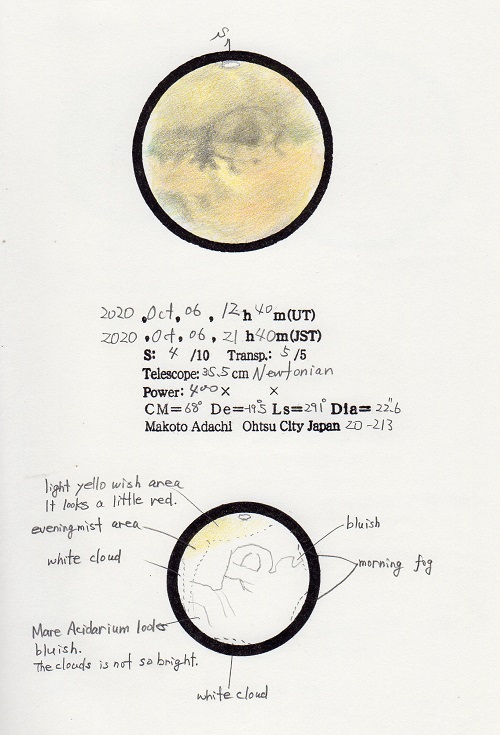 S
2020 . Oct. 06 . 12 h 40 m(UT)
2020 . Oct. 06 . 21 h 40 m(JST)
S: 4 /10 Transp.: 5 /5
Telescope: 35.5 cm Newtonian
Power: 400 × ×
CM=68° De=-19°.5 Ls=291° Dia=22".6
Makoto Adachi Ohtsu City Japan 20-213
light yello wish area
It looks a little red.
evening mist area
bluish
white cloud
morning fog
Mare Acidarium looks
bluish.
The clouds is not so bright.
white cloud